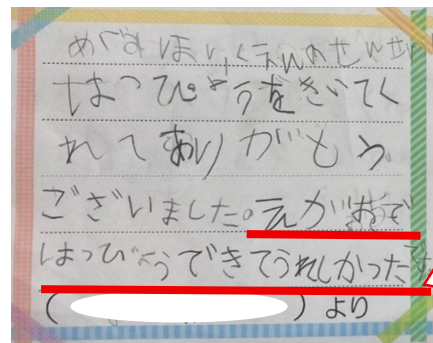 ほいくえんのせんせい
はっぴょうをきいてく
れてありがとう
ございました。えがおで
はっぴょうできてうれしかったです
(　　　) より